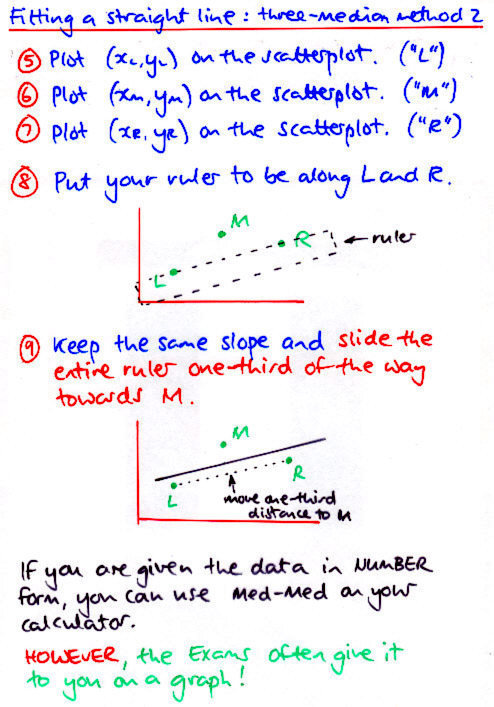 Fitting a straight line: three-median method 2
⑤ Plot (xL, yL) on the scatterplot. ("L")
⑥ Plot (xM, yM) on the scatterplot. ("M")
⑦ Plot (xR, yR) on the scatterplot. ("R")
⑧ Put your ruler to be along L and R.
M
R
ruler
L
⑨ Keep the same slope and slide the
entire ruler one-third of the way
towards M.
M
R
L
move one-third
distance to M
If you are given the data in NUMBER
form, you can use Med-Med on your
calculator.
HOWEVER, the Exams often give it
to you on a graph!